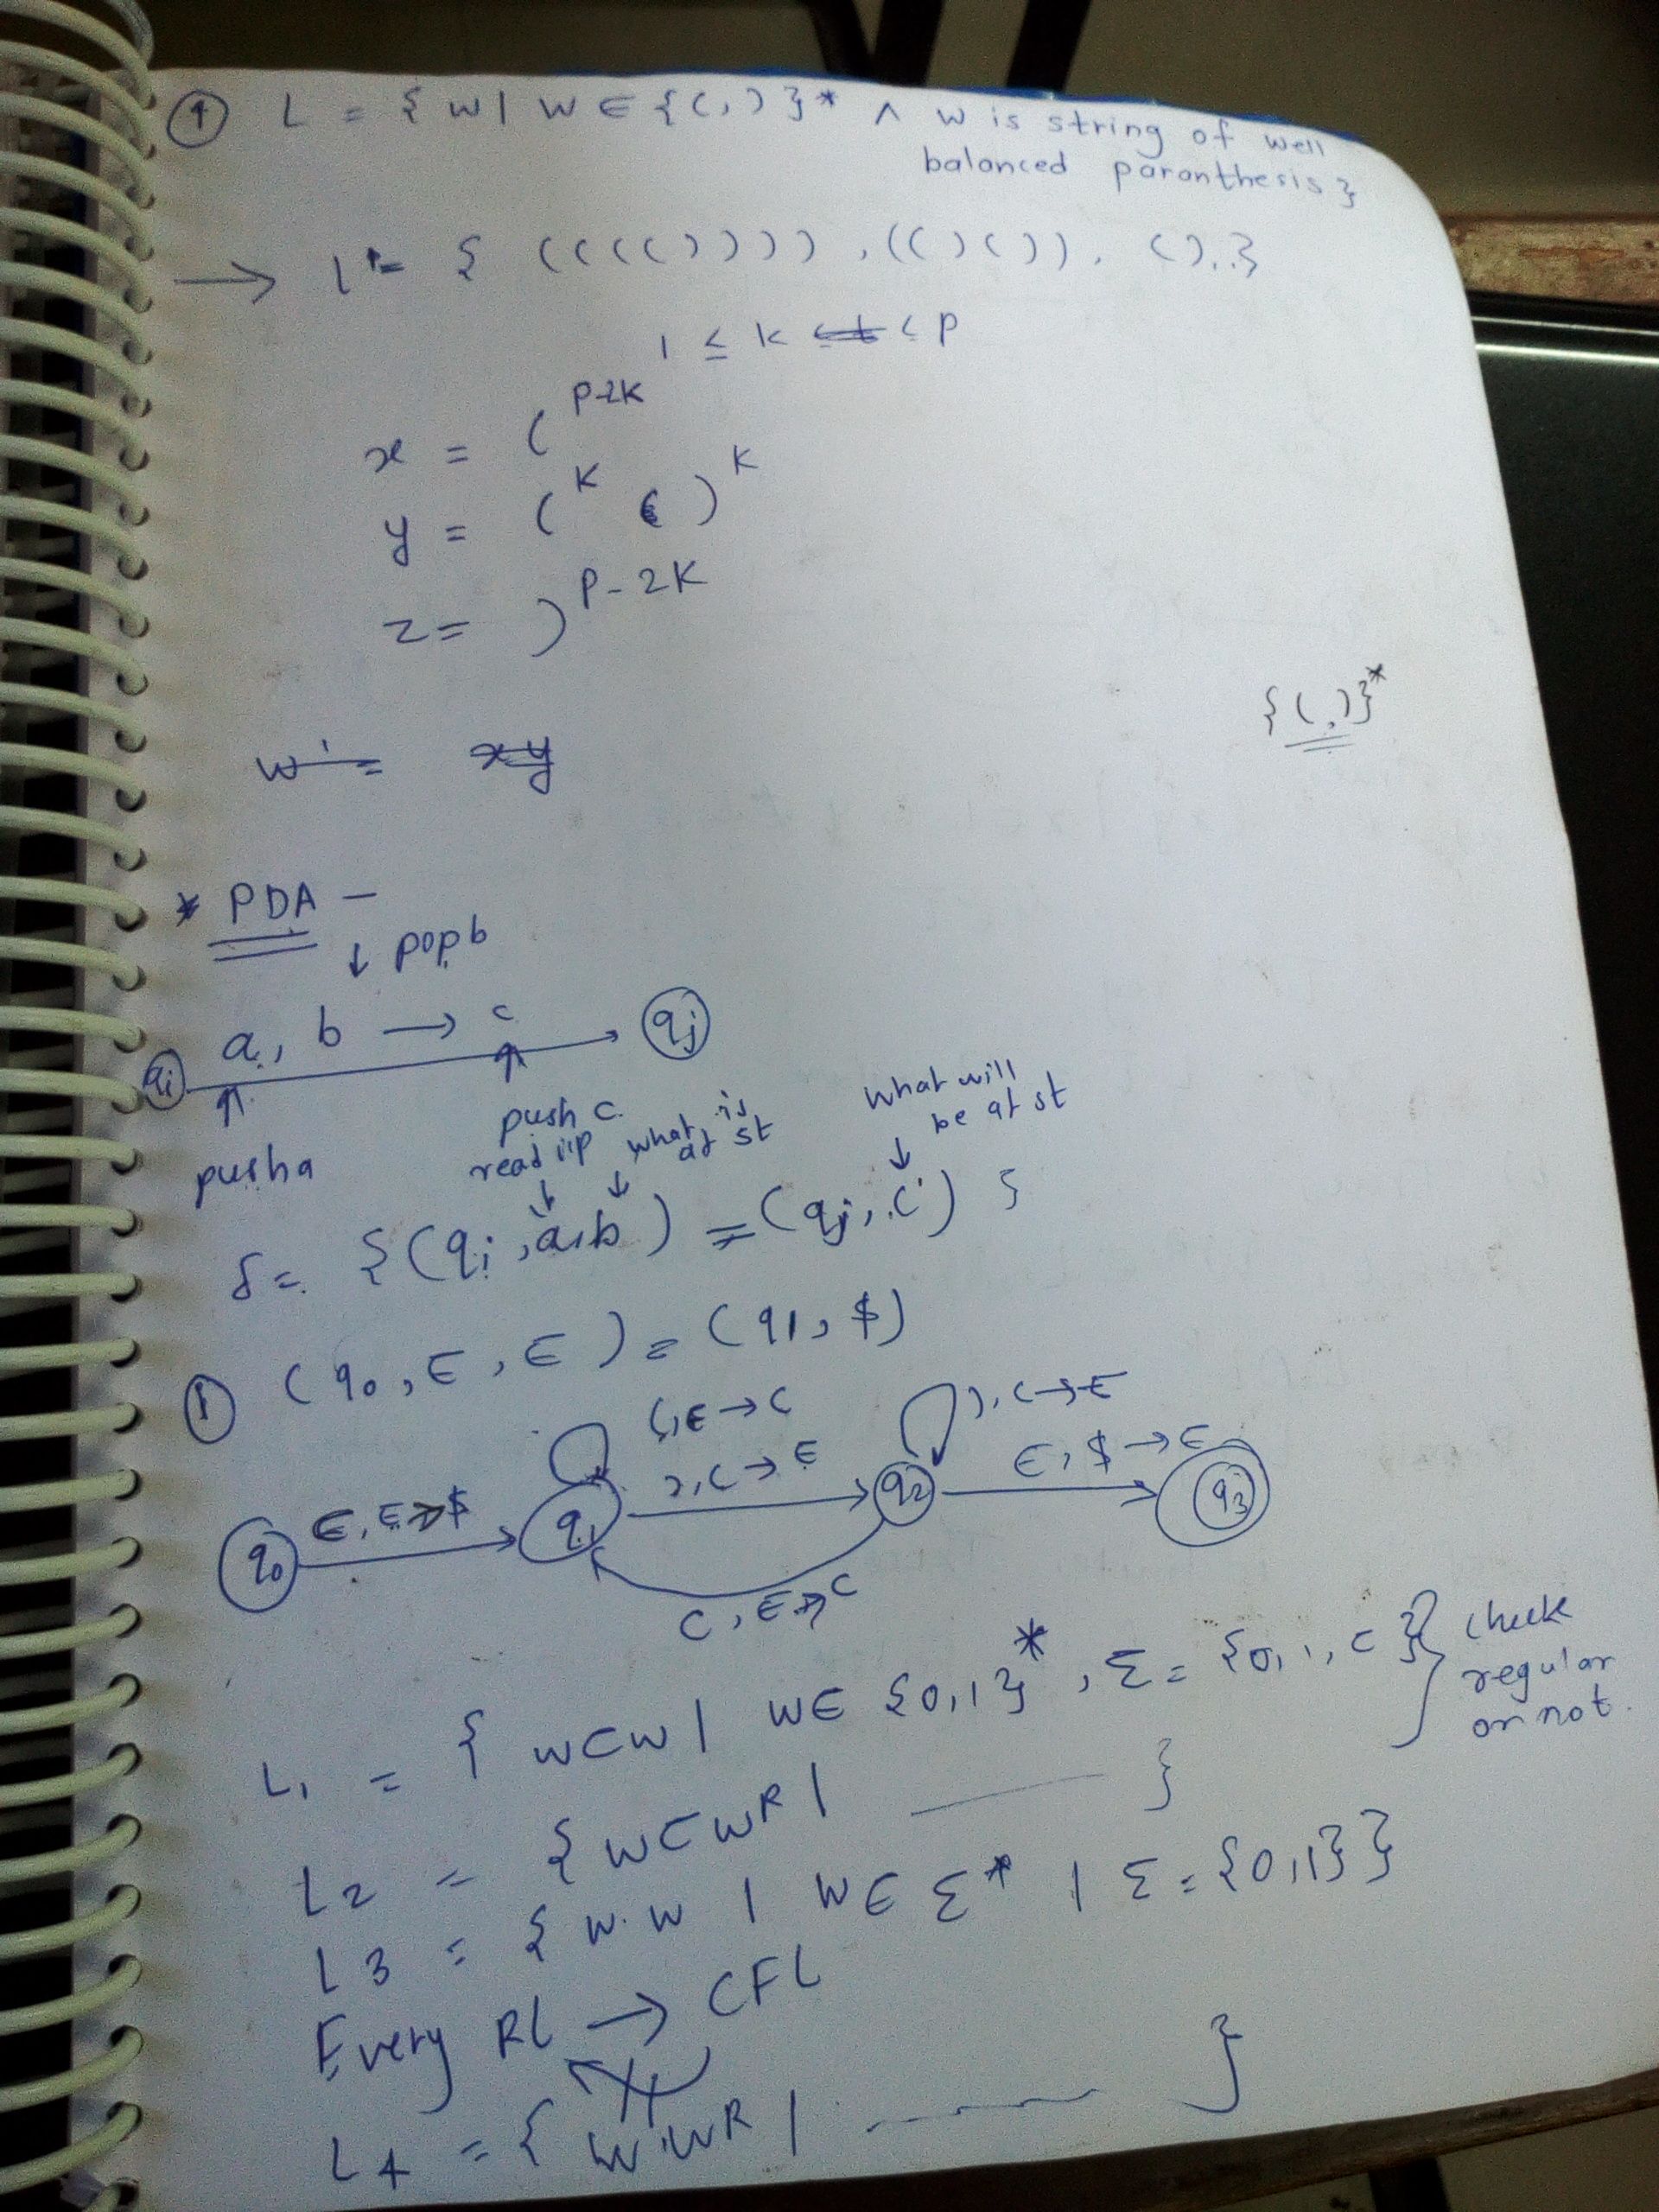 ① L = { w | w ∈ { (, ) }* ∧ w is string of well
balanced paranthesis }
→ L = { (((()))), (()()), ()..}
1 ≤ k < p
x = ( p-2k
y = ( k ) k
z = ) p-2k
{(,)}*
w' = xy
* PDA -
↓ pop b
qi a, b → c qj
push a
push c
read i/p
what is at st
what will be at st
δ = {(qi, a, b) = (qj, c) }
① (q0, ε, ε) = (q1, $)
(, ε → ( ), ( → ε
q0 ε, ε → $ q1 ), ( → ε q2 ε, $ → ε q3
(, ε → (
L1 = { wcw | w ∈ {0,1}*, Σ = {0,1,c} } check regular or not.
L2 = { wcwR | ——— }
L3 = { w.w | w ∈ Σ* | Σ = {0,1} }
Every RL → CFL
L4 = { w.wR | ——— }